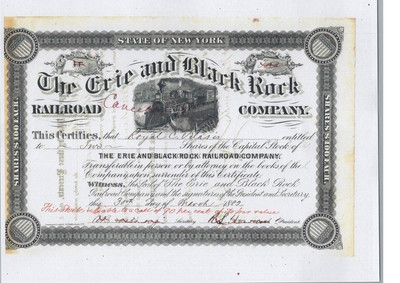 STATE OF NEW YORK
The Erie and Black Rock
RAILROAD COMPANY.
SHARES $100 EACH.
SHARES $100 EACH.
This Certifies, that Loyal C. entitled
to Shares of the Capital Stock of
THE ERIE AND BLACK ROCK RAILROAD COMPANY.
Transferable in person or by attorney on the books of the
Company upon surrender of this Certificate.
Witness, The Seal of The Erie and Black Rock
Railroad Company and the signatures of the President and Secretary
this 30th day of March 1883
This Stock is liable to a call of 90 per cent of its par value
Secretary President